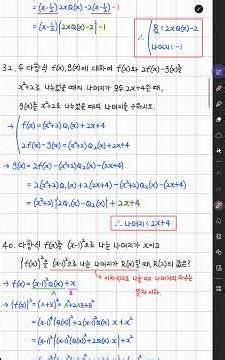 = (x-½)2xQ(x)-2(x-½)-1
= (x-½){2xQ(x)-2}-1
∴ 몫: 2xQ(x)-2
나머지: -1
32. 두 다항식 f(x), g(x)에 대하여 f(x)와 2f(x)-g(x)를
x²+2로 나누었을 때의 나머지가 모두 2x+4일 때,
g(x)를 x²+2로 나누었을 때의 나머지를 구하시오.
→ f(x)=(x²+2)Q₁(x)+2x+4
2f(x)-g(x)=(x²+2)Q₂(x)+2x+4
→ g(x)=2f(x)-(x²+2)Q₂(x)-(2x+4)
=2(x²+2)Q₁(x)+2(2x+4)-(x²+2)Q₂(x)-(2x+4)
=(x²+2){2Q₁(x)-Q₂(x)}+2x+4
∴ 나머지: 2x+4
40. 다항식 f(x)를 (x-1)²으로 나눈 나머지가 x이고
{f(x)}²을 (x-1)²으로 나눈 나머지가 R(x)일 때, R(2)의 값은?
→ f(x)=(x-1)²Q(x)+x
→ {f(x)}²=(A+B)²=A²+2AB+B²